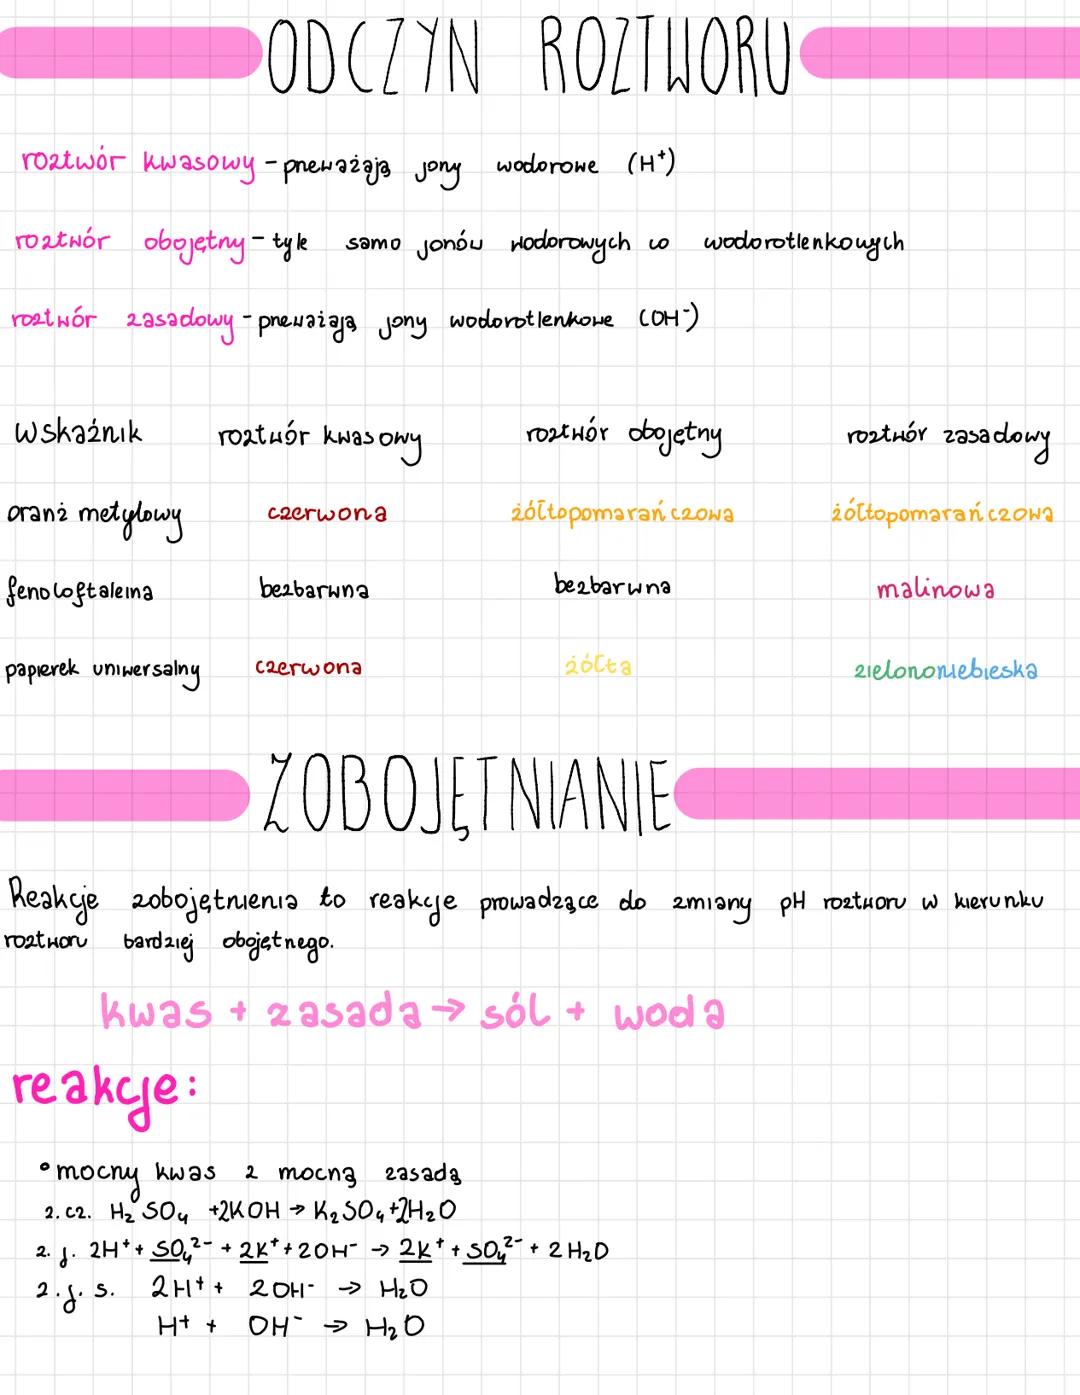 ODCZYN ROZTWORU
roztwór kwasowy - przeważają jony wodorowe (H⁺)
roztwór obojętny - tyle samo jonów wodorowych co wodorotlenkowych
roztwór zasadowy - przeważają jony wodorotlenkowe (OH⁻)
Wskaźnik roztwór kwasowy roztwór obojętny roztwór zasadowy
oranż metylowy czerwona żółtopomarańczowa żółtopomarańczowa
fenoloftaleina bezbarwna bezbarwna malinowa
papierek uniwersalny czerwona żółta zielononiebieska
ZOBOJĘTNIANIE
Reakcje zobojętnienia to reakcje prowadzące do zmiany pH roztworu w kierunku
roztworu bardziej obojętnego.
kwas + zasada → sól + woda
reakcje:
• mocny kwas z mocną zasadą
z. cz. H₂SO₄ +2KOH → K₂SO₄+2H₂O
z. j. 2H⁺ + SO₄²⁻ + 2K⁺ + 2OH⁻ → 2K⁺ + SO₄²⁻ + 2H₂O
z. j. s. 2H⁺ + 2OH⁻ → H₂O
H⁺ + OH⁻ → H₂O